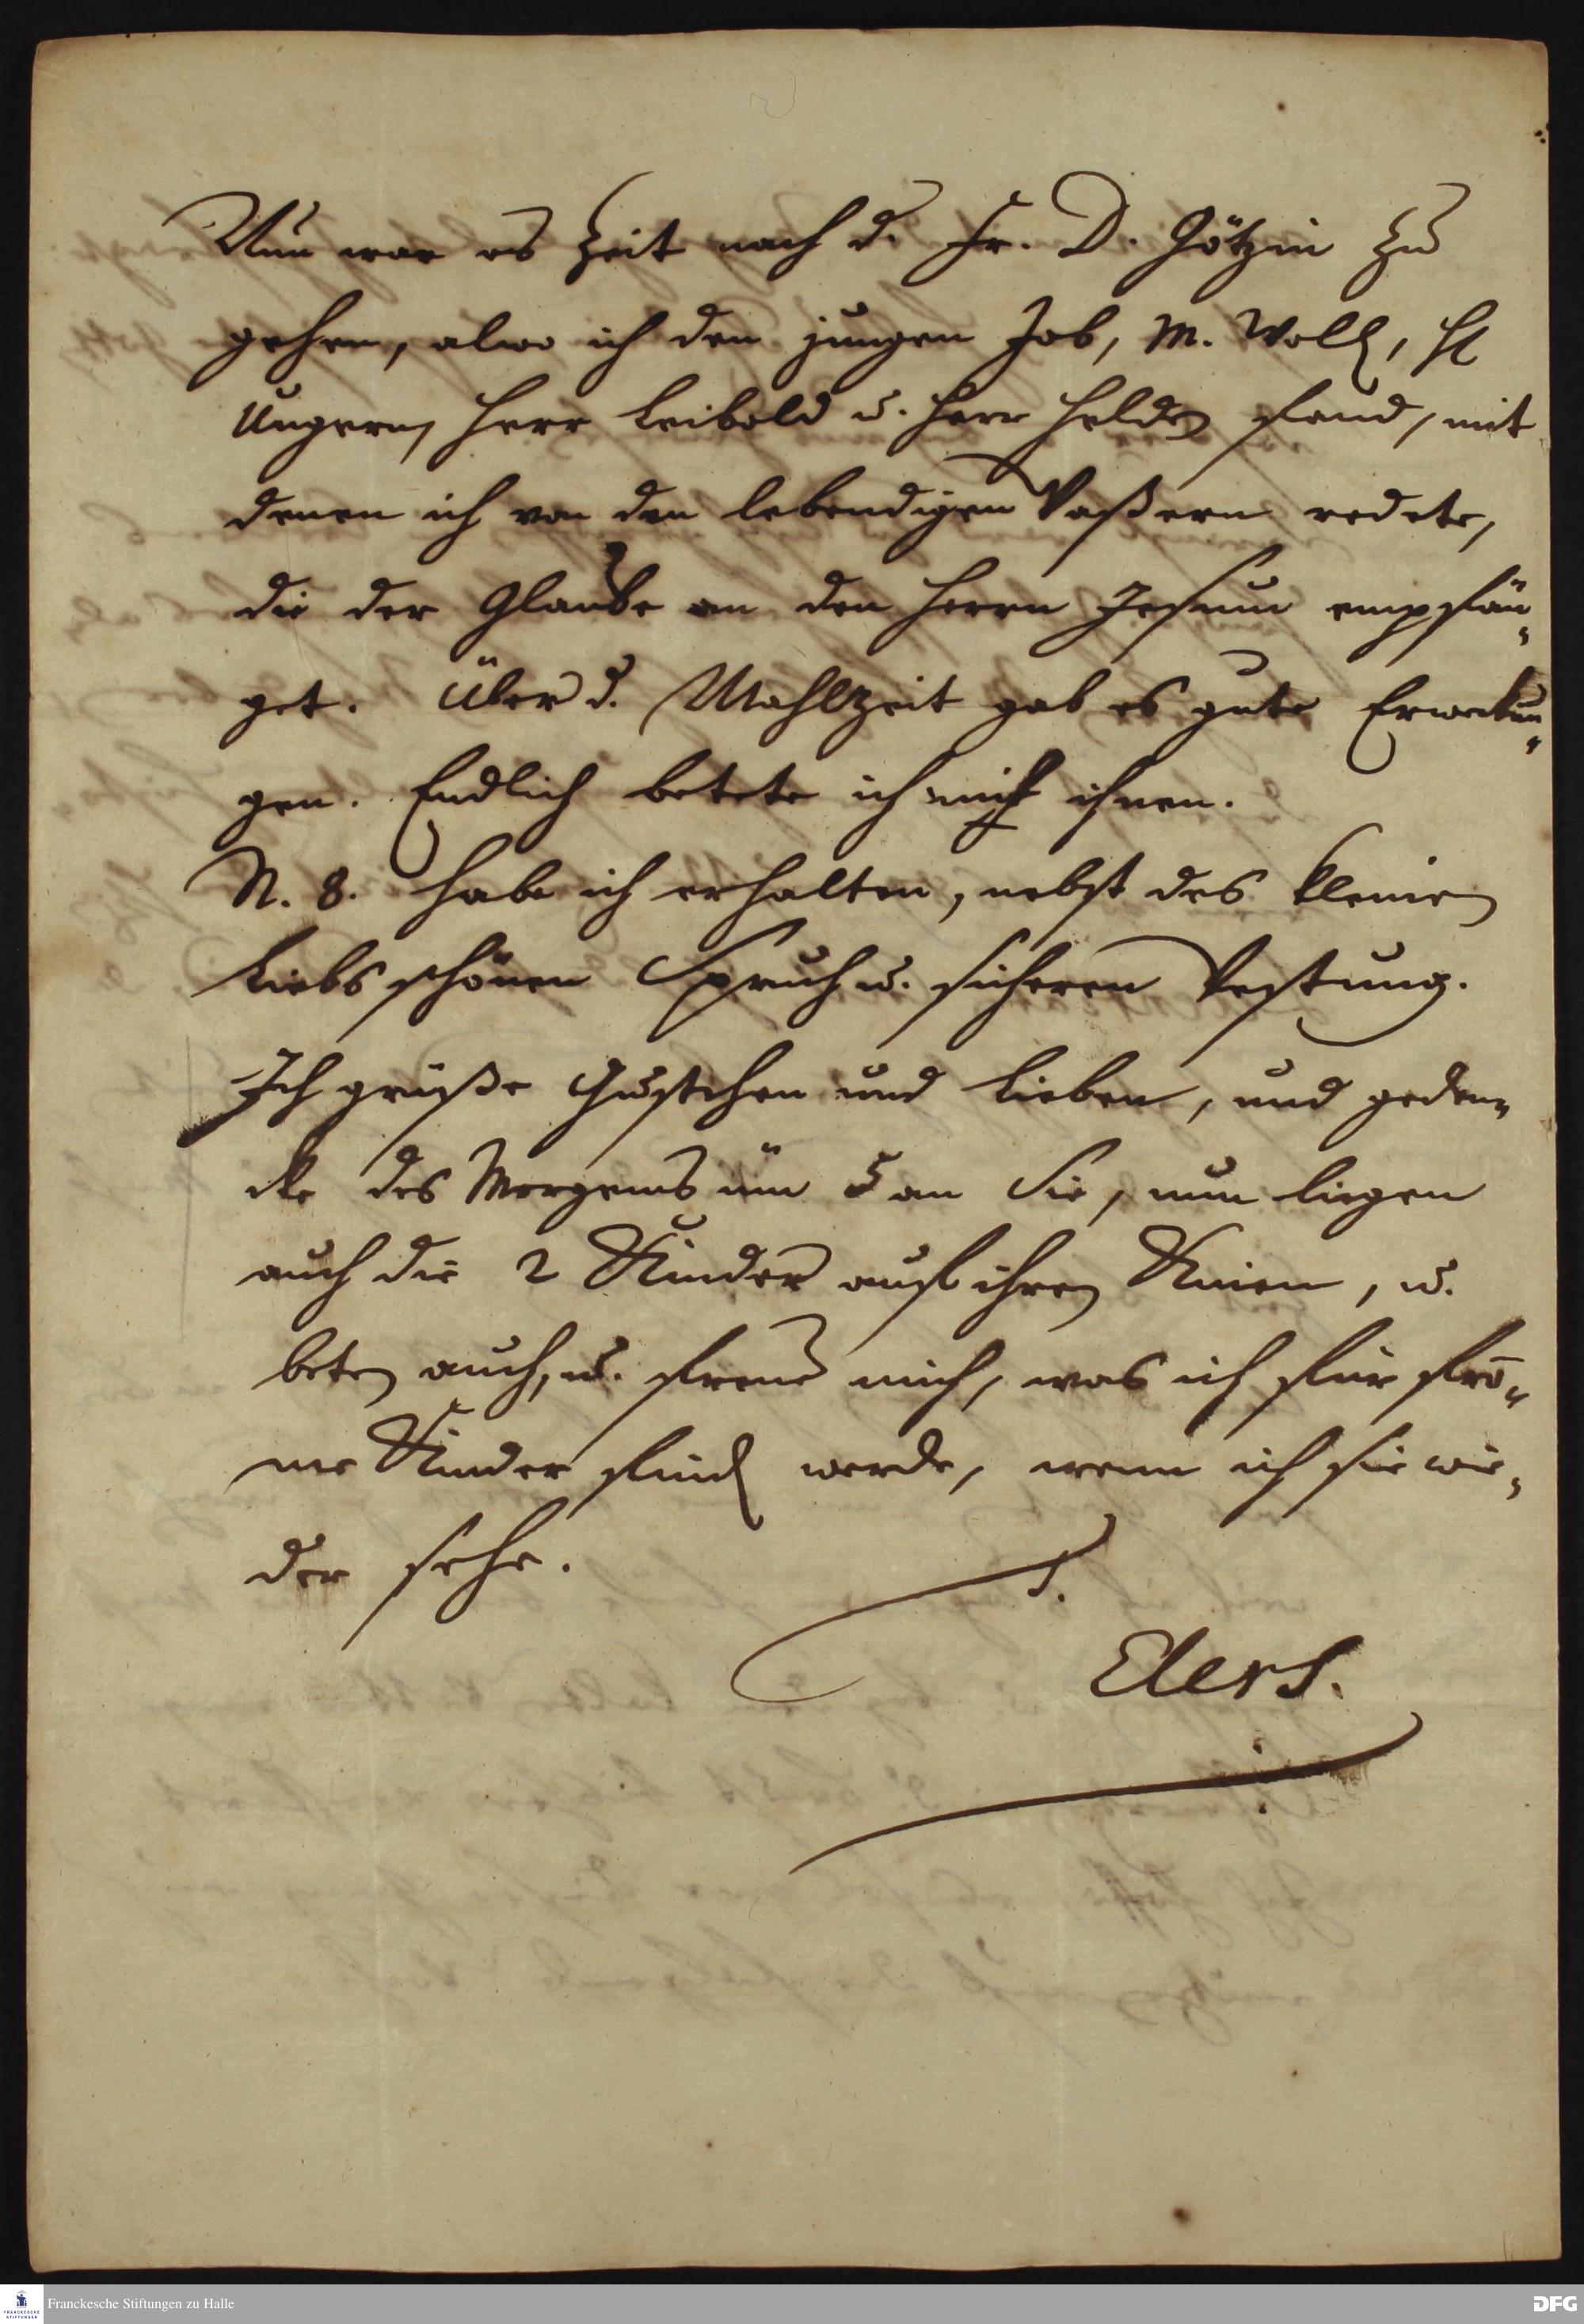 Nun war es Zeit nach d. Fr. D. Götzin zu
gehen, alwo ich den jungen Job, M. Woll, H
Ungern, Herr Leibold u. Herr Helden fand, mit
denen ich von den lebendigen Waßern redete,
die der Glaube an den Herrn Jesum empfän¬
get. Über d. Mahlzeit gab es gute Erweckun¬
gen. Endlich betete ich mit ihnen.
N. 8. habe ich erhalten, nebst des kleinen
Liebs schönen Spruch u. sicheren Vestung.
Ich grüße Gustchen und Lieben, und geden¬
cke des Morgens üm 5 an Sie, nun liegen
auch die 2 Kinder auf ihren Knien, u.
beten auch, u. freue mich, was ich für fro¬
me Kinder finden werde, wenn ich sie wie¬
der sehe.
Elers.
Franckesche Stiftungen zu Halle
DFG
FRANCKESCHE
STIFTUNGEN